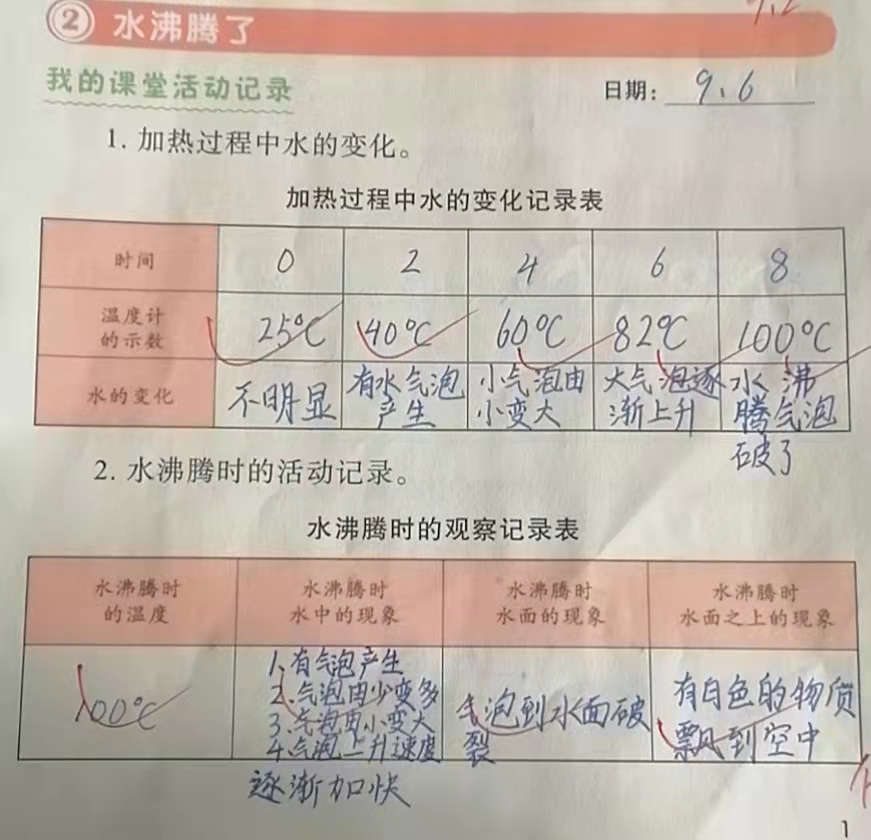 ② 水沸腾了
我的课堂活动记录
日期: 9.6
1. 加热过程中水的变化。
加热过程中水的变化记录表
时间 0 2 4 6 8
温度计的示数 25℃ 40℃ 60℃ 82℃ 100℃
水的变化 不明显 有水气泡产生 小气泡由小变大 大气泡逐渐上升 水沸腾气泡破了
2. 水沸腾时的活动记录。
水沸腾时的观察记录表
水沸腾时的温度 水沸腾时水中的现象 水沸腾时水面的现象 水沸腾时水面之上的现象
100℃
1、有气泡产生
2、气泡由少变多
3、气泡由小变大
4、气泡上升速度
逐渐加快
气泡到水面破
裂
有白色的物质
飘到空中
1